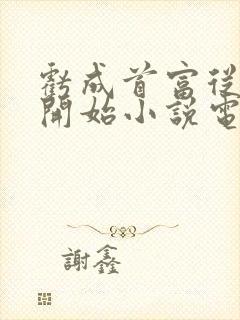 虧成首富從
開始小說電
謝鑫